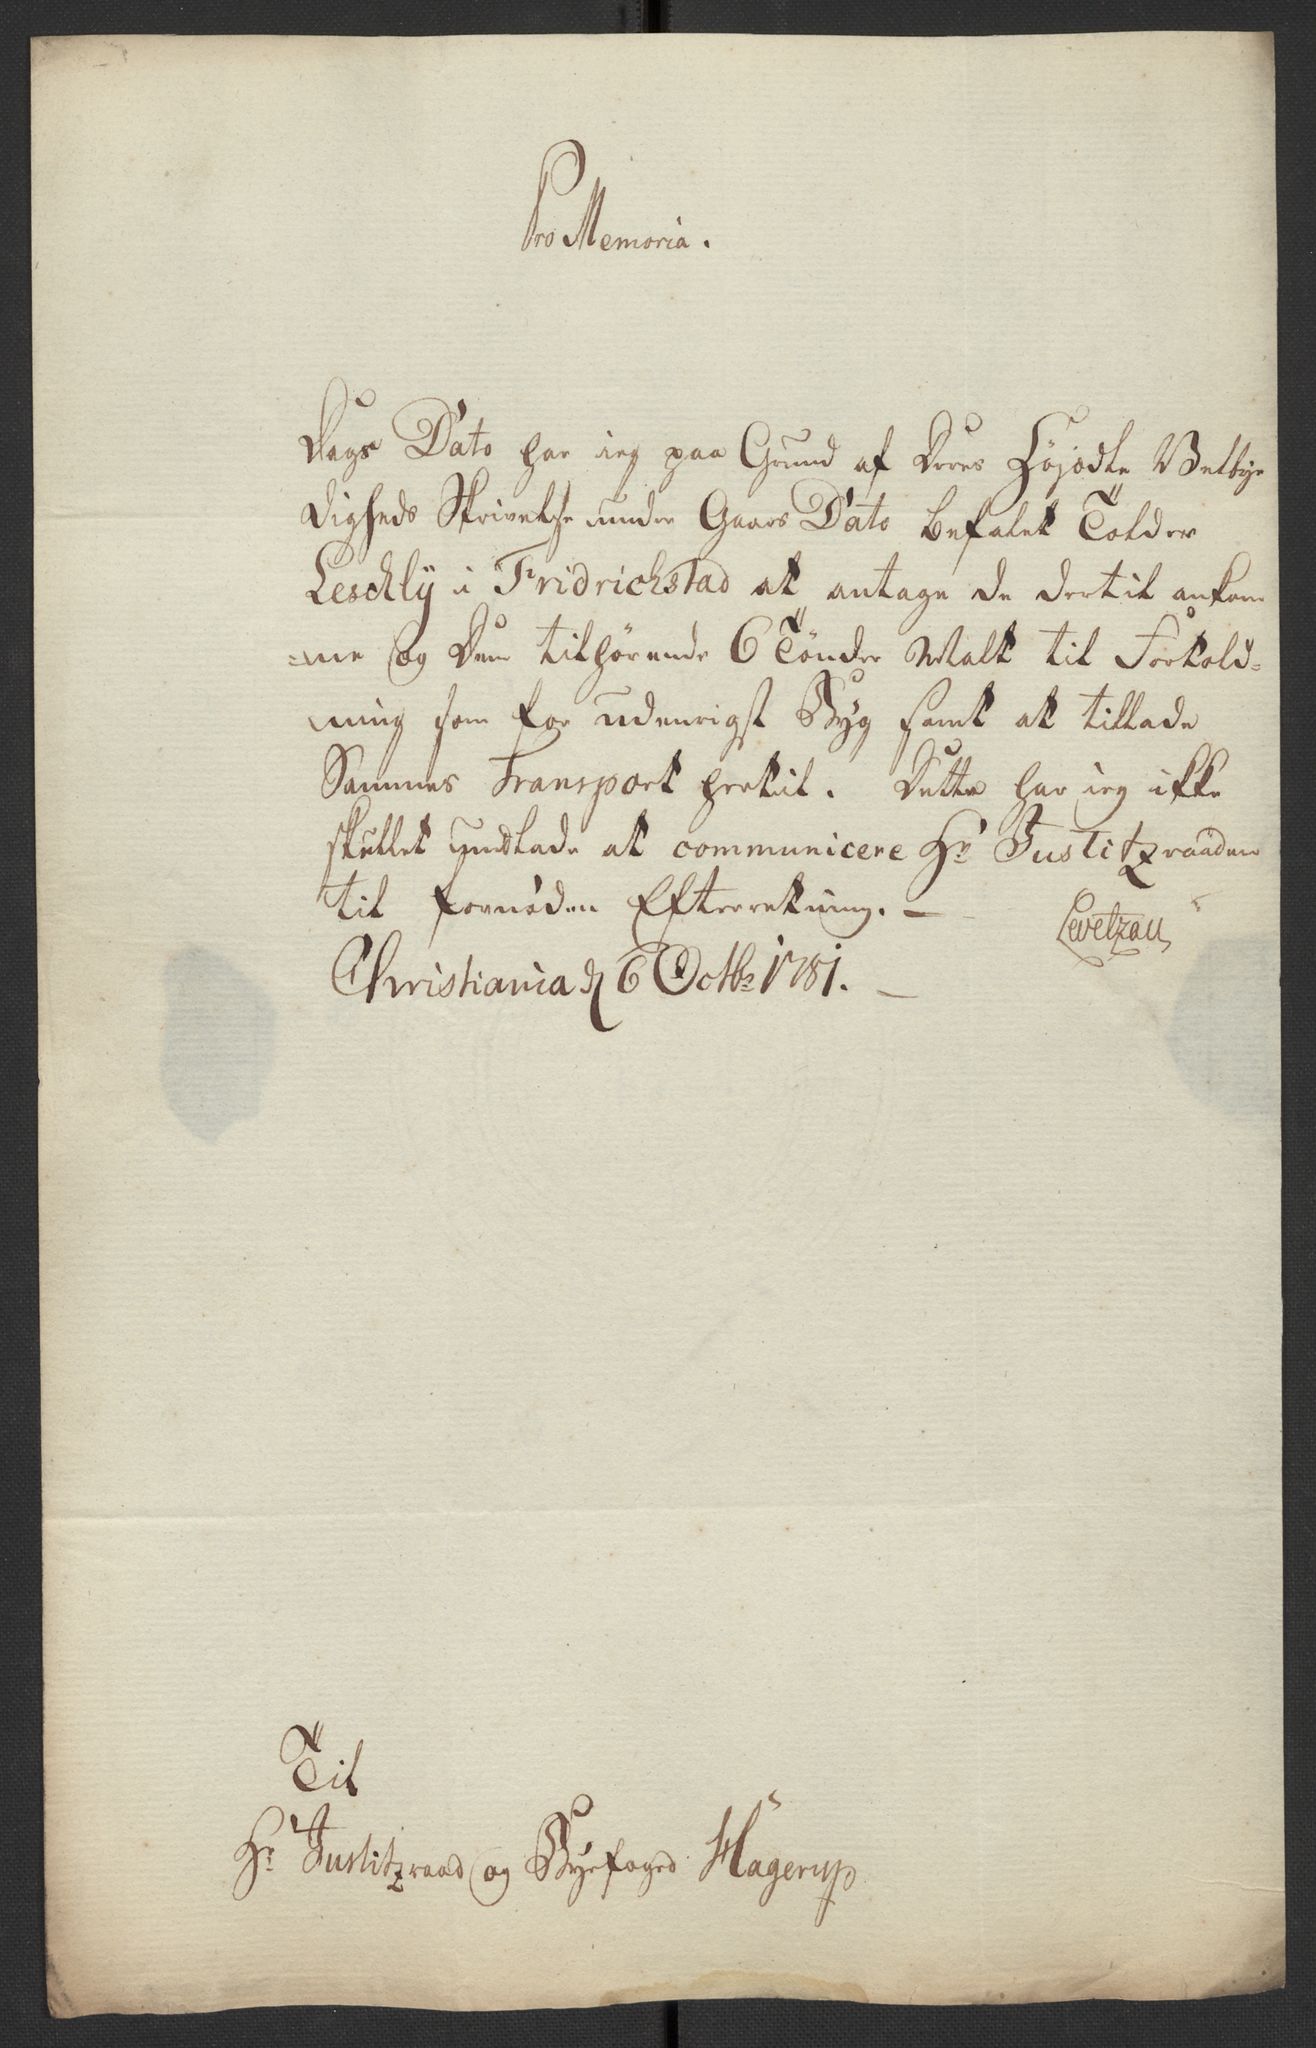 Pro Memoria.
Dags Dato har ieg paa Grund af Deres Høyædle Velbyr
digheds Skrivelse under Gaars Dato befalet Tolder
Leschly i Fridrichstad at antage de dertil ankom
=ne og Dem tilhørende 6 Tønder Malt til Fortold=
ning som for udenrigst Byg samt at tillade
Sammes Transport hertil. Dette har ieg ikke
skullet undlade at communicere Hr Justitzraaden
til fornøden Efterretning. —
Levetzau
Christiania d 6 Octbr 1781. —
Til
Hr Justitzraad og Byefoged Hagerup